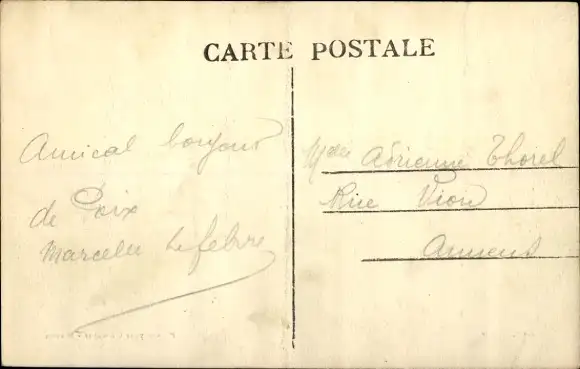 CARTE POSTALE
Amical bonjour
de Poix
Marcelle Lefebvre
Melle Adrienne Thorel
Rue Vion
Amiens